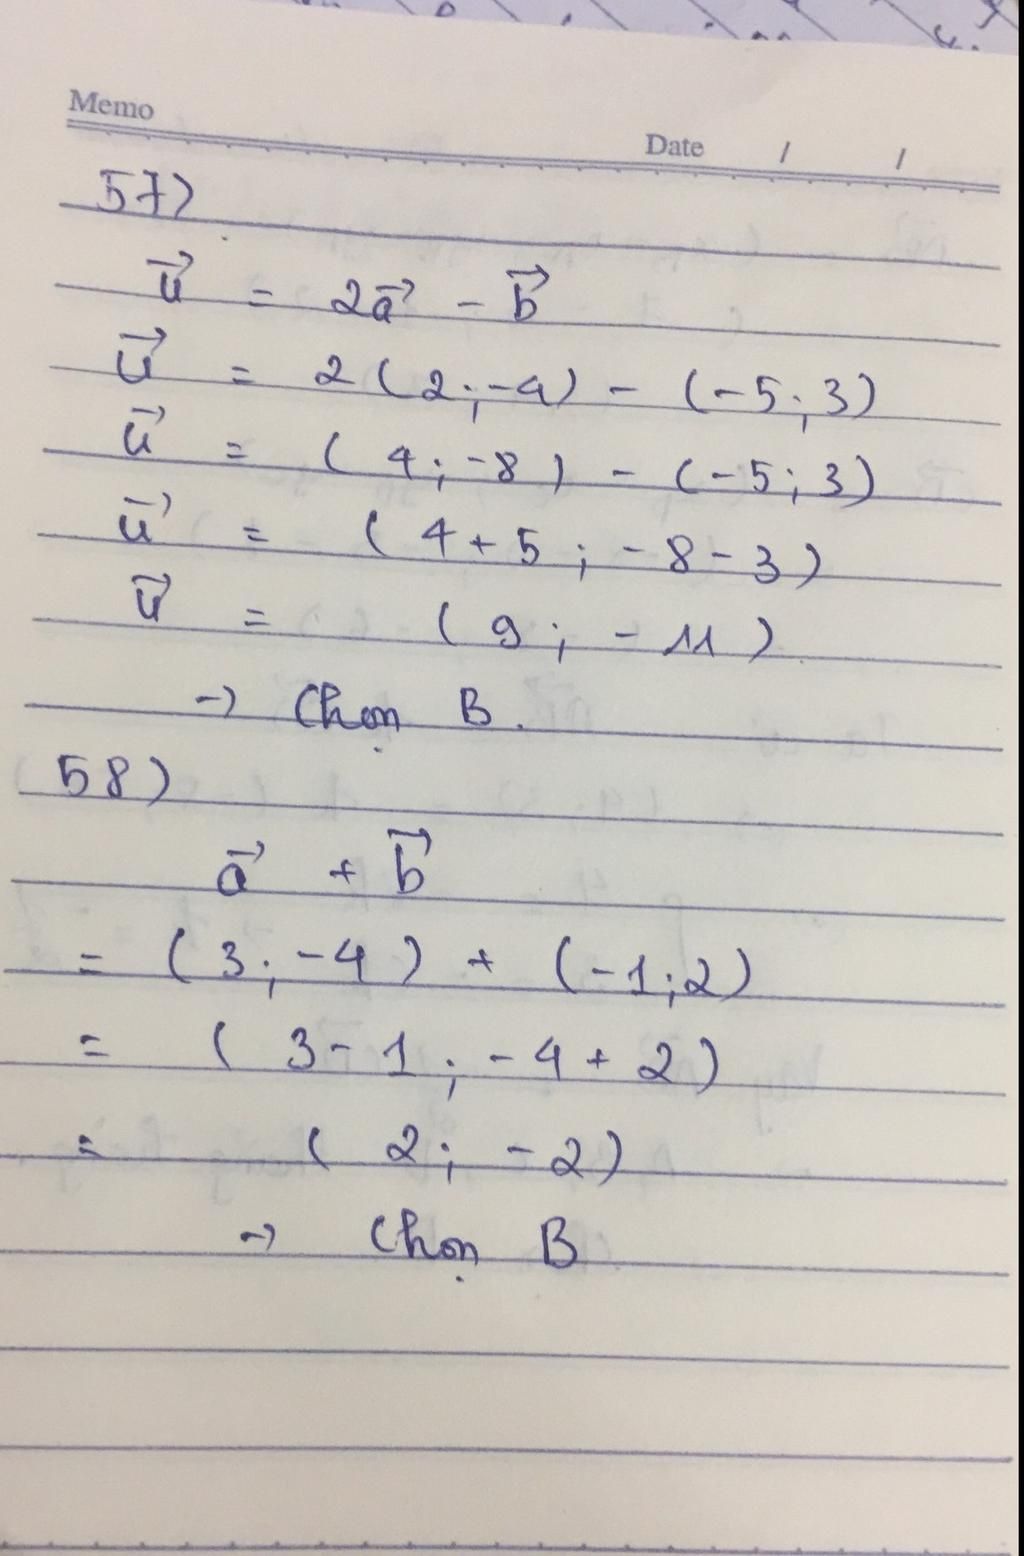 Memo
Date / /
57)
u⃗ = 2a⃗ - b⃗
u⃗ = 2(2;-4) - (-5;3)
u⃗ = (4;-8) - (-5;3)
u⃗ = (4+5;-8-3)
u⃗ = (9;-11)
→ Chọn B.
58)
a⃗ + b⃗
= (3;-4) + (-1;2)
= (3-1;-4+2)
= (2;-2)
→ Chọn B